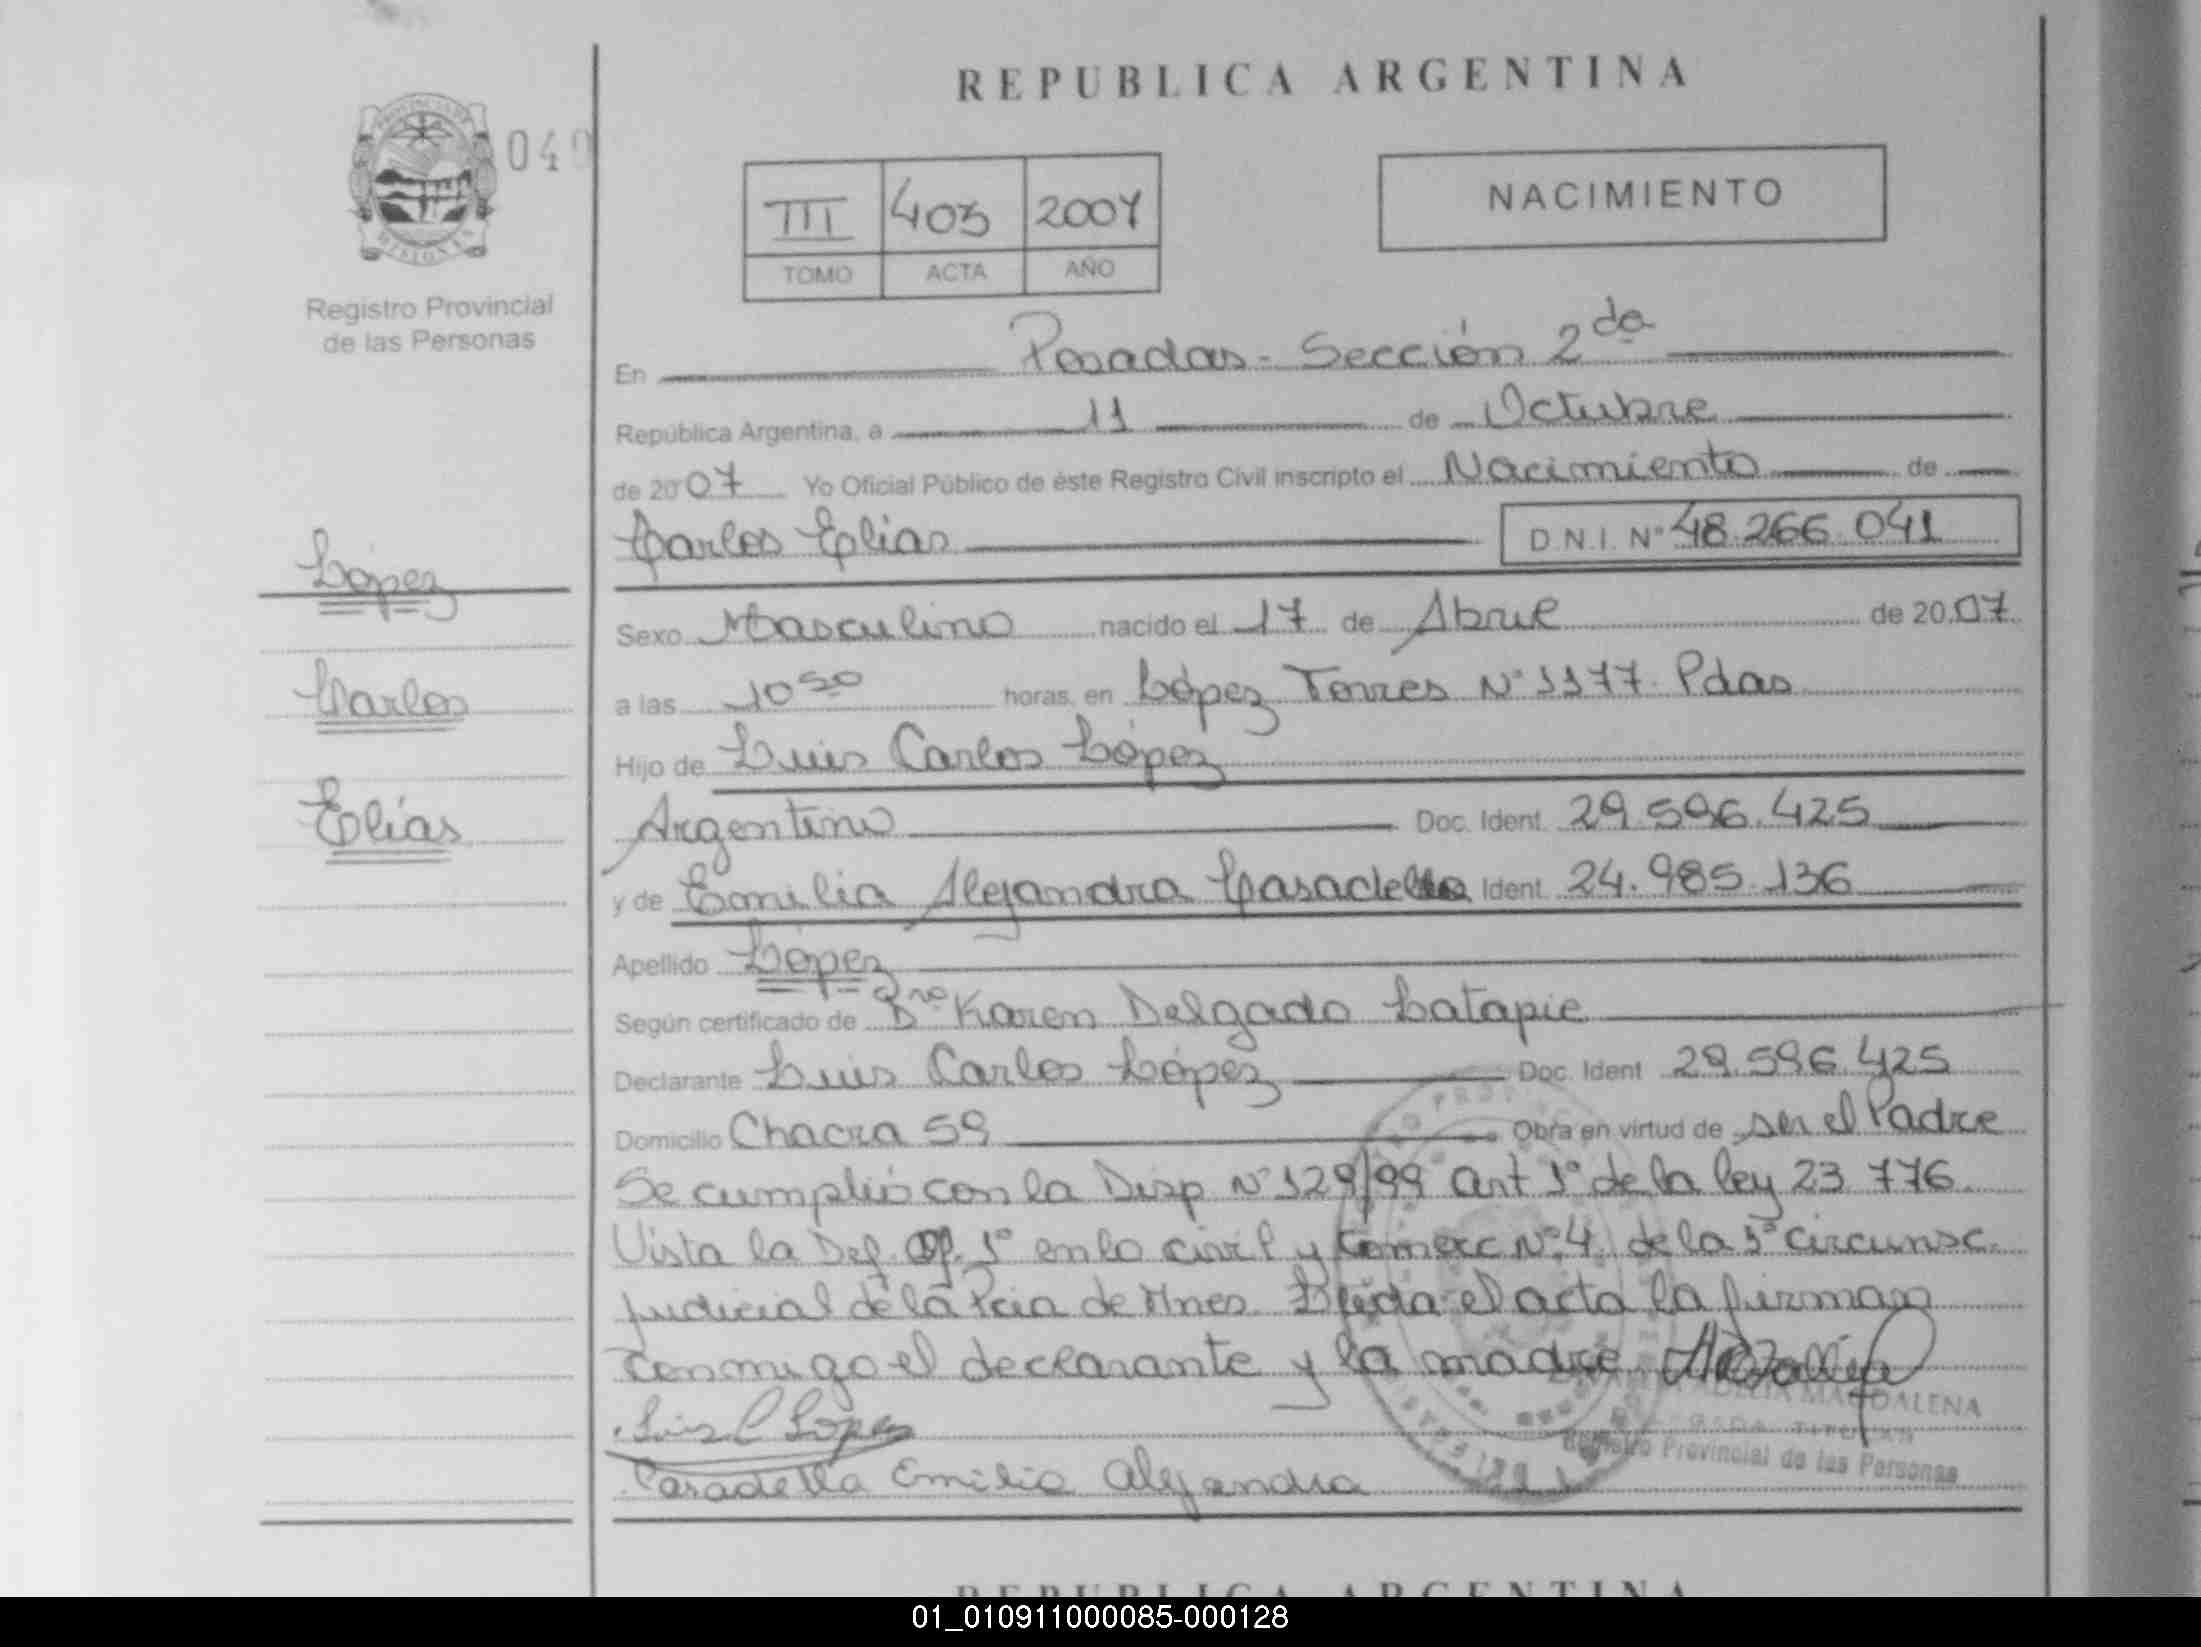 REPUBLICA ARGENTINA
PROVINCIA DE
MISIONES
040
Registro Provincial
de las Personas
III 403 2007
TOMO ACTA AÑO
NACIMIENTO
En Posadas - Sección 2da
República Argentina, a 11 de Octubre
de 2007 Yo Oficial Público de éste Registro Civil inscripto el Nacimiento de
Carlos Elias D.N.I. Nº 48.266.041
López
Carlos
Elías
Sexo Masculino nacido el 17 de Abril de 2007
a las 10 50 horas, en López Torres Nº 1177 Pdas
Hijo de Luis Carlos López
Argentino Doc. Ident. 29.596.425
y de Emilia Alejandra Casadella Ident. 24.985.136
Apellido López
Según certificado de Karen Delgado Latapie
Declarante Luis Carlos López Doc. Ident 29.596.425
Domicilio Chacra 59 Obra en virtud de ser el Padre
Se cumplió con la Disp Nº 129/99 Art 1º de la ley 23.776.
Vista la Def. Of. 1º en lo civil y Comerc Nº 4 de la 1ª circunsc.
judicial de la Pcia de Mnes. Leída el acta la firman
conmigo el declarante y la madre
Luis C López
MAGDALENA
TITULAR
Registro Provincial de las Personas
Casadella Emilia Alejandra
REPUBLICA ARGENTINA
01_010911000085-000128